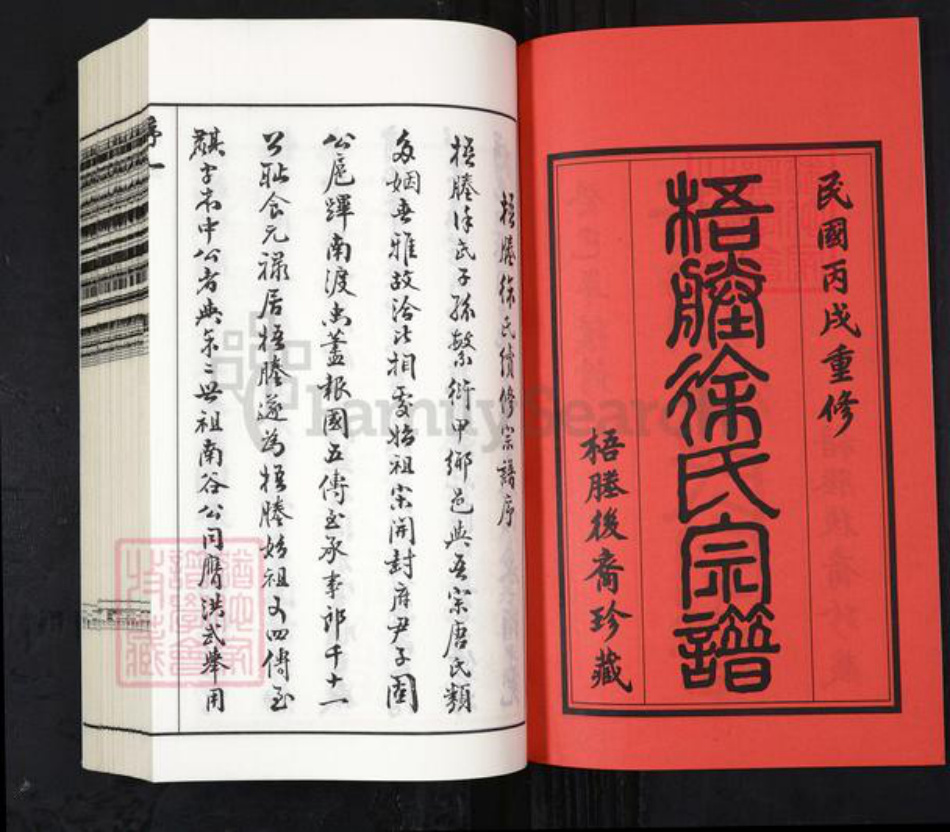 民國丙戌重修
梧塍徐氏宗譜
梧塍後裔珍藏
梧塍徐氏續修宗譜序
梧塍徐氏子孫繁衍甲鄉邑與吾宗唐氏類
多姻垂雅故洽比相愛始祖宋開封府尹子固
公扈蹕南渡忠藎報國五傳至承事郎千十一
公恥食元祿居梧塍遂為梧塍始祖又四傳至
麒字本中公者與余二世祖南谷公同膺洪武舉用
序 一
FamilySearch